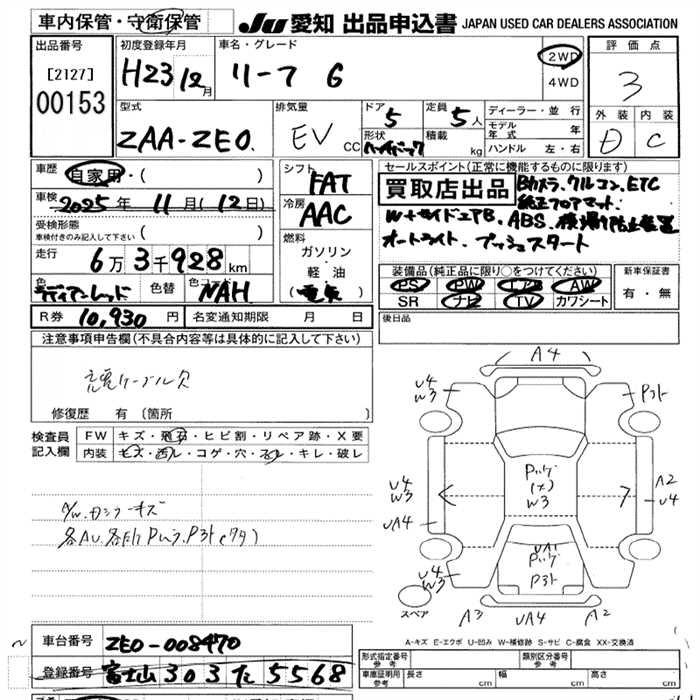 車内保管・守衛保管
JU 愛知 出品申込書 JAPAN USED CAR DEALERS ASSOCIATION
出品番号
[2127]
00153
初度登録年月
H23 12月
車名・グレード
リーフ G
2WD
4WD
評価点
3
外装 内装
D C
型式
ZAA-ZE0.
排気量
EV CC
ドア 5
形状 ハッチバック
定員 5人
積載 kg
ディーラー・並行
モデル年式 年
ハンドル 左・右
車歴
自家用・( )
車検
2025年 11月(12日)
受検形態
車検付きのみ記入して下さい ( )
走行
6万3千928km
色 ラディアントレッド
色替
色コード NAH
シフト
FAT
冷房
AAC
燃料
ガソリン
・
軽油
(電気)
セールスポイント(正常に機能するものに限ります)
買取店出品 Bカメラ、クルコン、ETC
純正フロアマット、
W+サイドエアB、ABS、横滑り防止装置
オートライト、プッシュスタート
装備品(純正品に限り○をつけてください)
PS PW エアB AW
SR ナビ TV カワシート
新車保証書
有・無
R券 10,930円
名変通知期限 月 日
後日品
注意事項申告欄(不具合内容等は具体的に記入して下さい)
充電ケーブル欠
修復歴 有(箇所 )
検査員記入欄
FW キズ・飛石・ヒビ割・リペア跡・X要
内装 キズ・汚レ・コゲ・穴・スレ・キレ・破レ
A4
U4
W3
U4
W3
UA4
U4
W3
A2
U4
W3
UA1
A3
UA4
A2
スペア
A-キズ E-エクボ U-凹み W-補修跡 S-サビ C-腐食 XX-交換済
車台番号
ZE0-008470
登録番号
富士山 303 た 5568
形式指定番号
参考
類別区分番号
参考
車庫証明用
参考
長さ cm
幅 cm
高さ cm